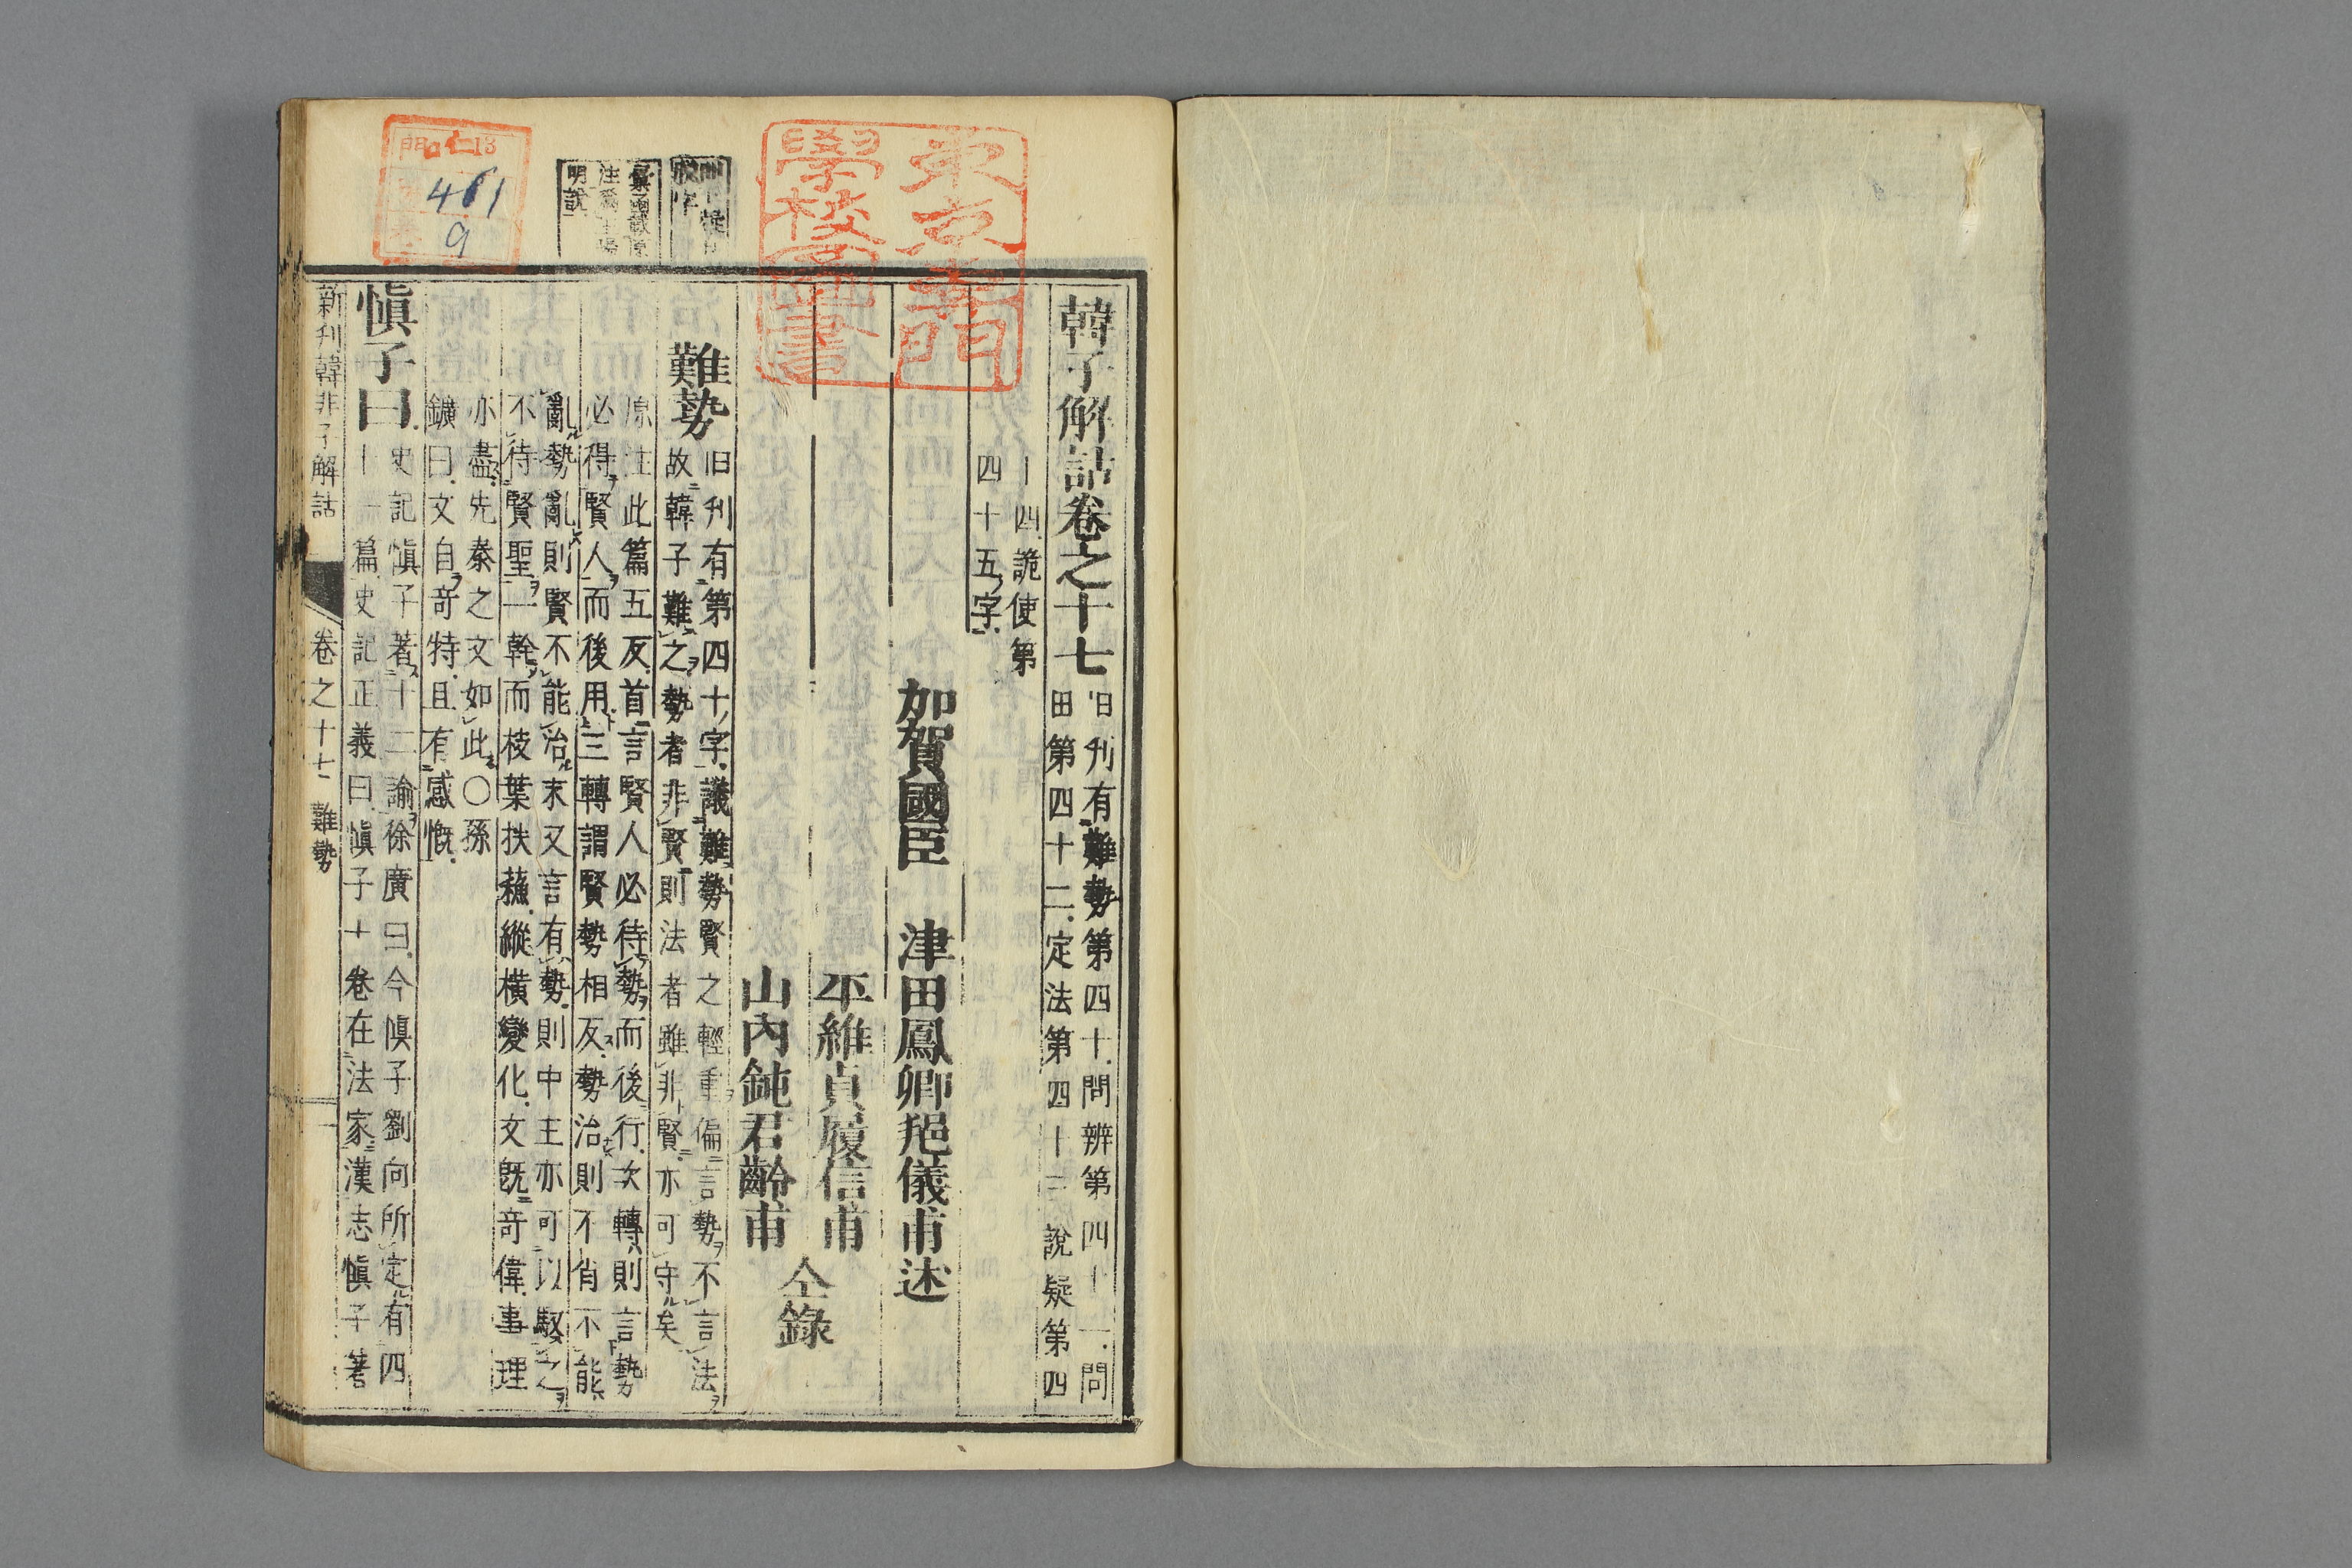 韓子解詁卷之十七
旧刋有難勢第四十問辨第四十一問
田第四十二定法第四十三說疑第四
十四詭使第
四十五字
加賀國臣 津田鳳卿𨚫儀甫述
平維貞履信甫
山內鈍君齡甫
仝錄
難勢
旧刋有第四十字議難勢賢之輕重偏言勢不言法
故韓子難之勢者非賢則法者雖非賢亦可守矣
原注此篇五反首言賢人必待勢而後行次轉則言勢
必得賢人而後用三轉謂賢勢相反勢治則不肖不能
亂勢亂則賢不能治末又言有勢則中主亦可以駮之
不待賢聖一幹而枝葉扶蘓縱橫變化文旣竒偉事理
亦盡先秦之文如此〇孫
鑛曰文自竒特且有感慨
愼子曰
史記愼子著十二論徐廣曰今愼子劉向所定有四
十一篇史記正義曰愼子十卷在法家漢志愼子著
新刋韓非子解詁 卷之十七 難勢
明說
東京専門
學校圖書
門 仁 13
461
9